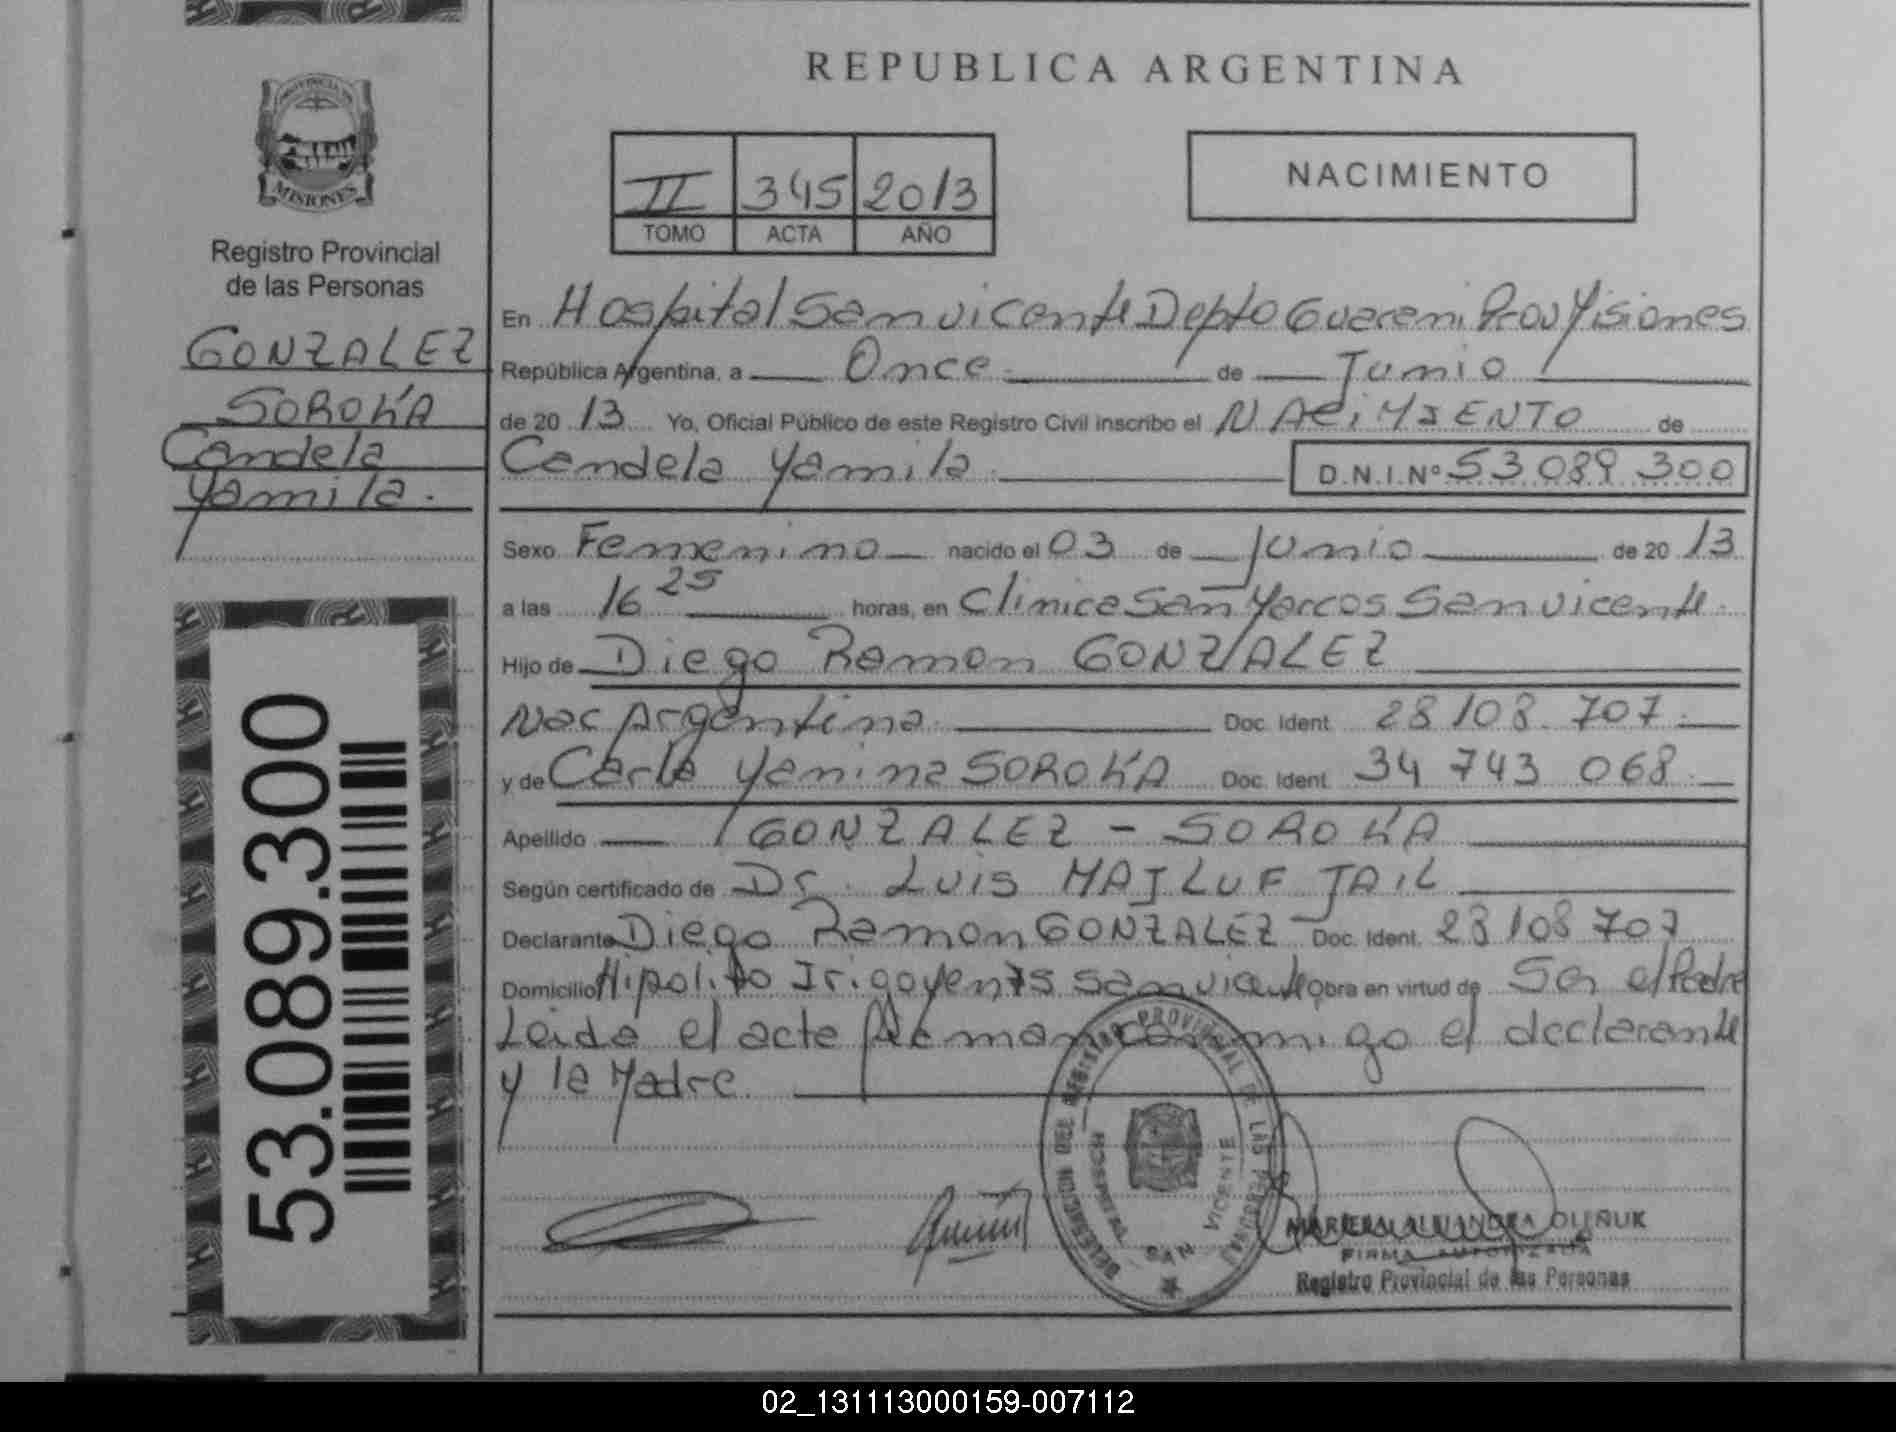 REPUBLICA ARGENTINA
PROVINCIA DE
MISIONES
Registro Provincial
de las Personas
GONZALEZ
SOROKA
Candela
Yamila.
53.089.300
II 345 2013
TOMO ACTA AÑO
NACIMIENTO
En Hospital San vicente Depto Guarani Prov Misiones
República Argentina, a Once de Junio
de 20 13 Yo, Oficial Público de este Registro Civil inscribo el NACIMIENTO de
Candela Yamila. D.N.I.Nº 53 089 300
Sexo Femenino nacido el 03 de Junio de 20 13
a las 16 25 horas, en Clinica San Marcos San vicente.
Hijo de Diego Ramon GONZALEZ
Nac Argentina. Doc. Ident. 28 108 707.
y de Carla Yanina SOROKA Doc. Ident. 34 743 068.
Apellido GONZALEZ - SOROKA
Según certificado de Dr. LUIS MAJLUF JAIL
Declarante Diego Ramon GONZALEZ Doc. Ident. 28 108 707
Domicilio Hipolito Irigoyen San vicente obra en virtud de Ser el Padre
Leida el acta firman conmigo el declarante
y la Madre.
REGISTRO PROVINCIAL DE LAS PERSONAS
SAN VICENTE
OLEÑUK
FIRMA AUTORIZADA
Registro Provincial de las Personas
02_131113000159-007112